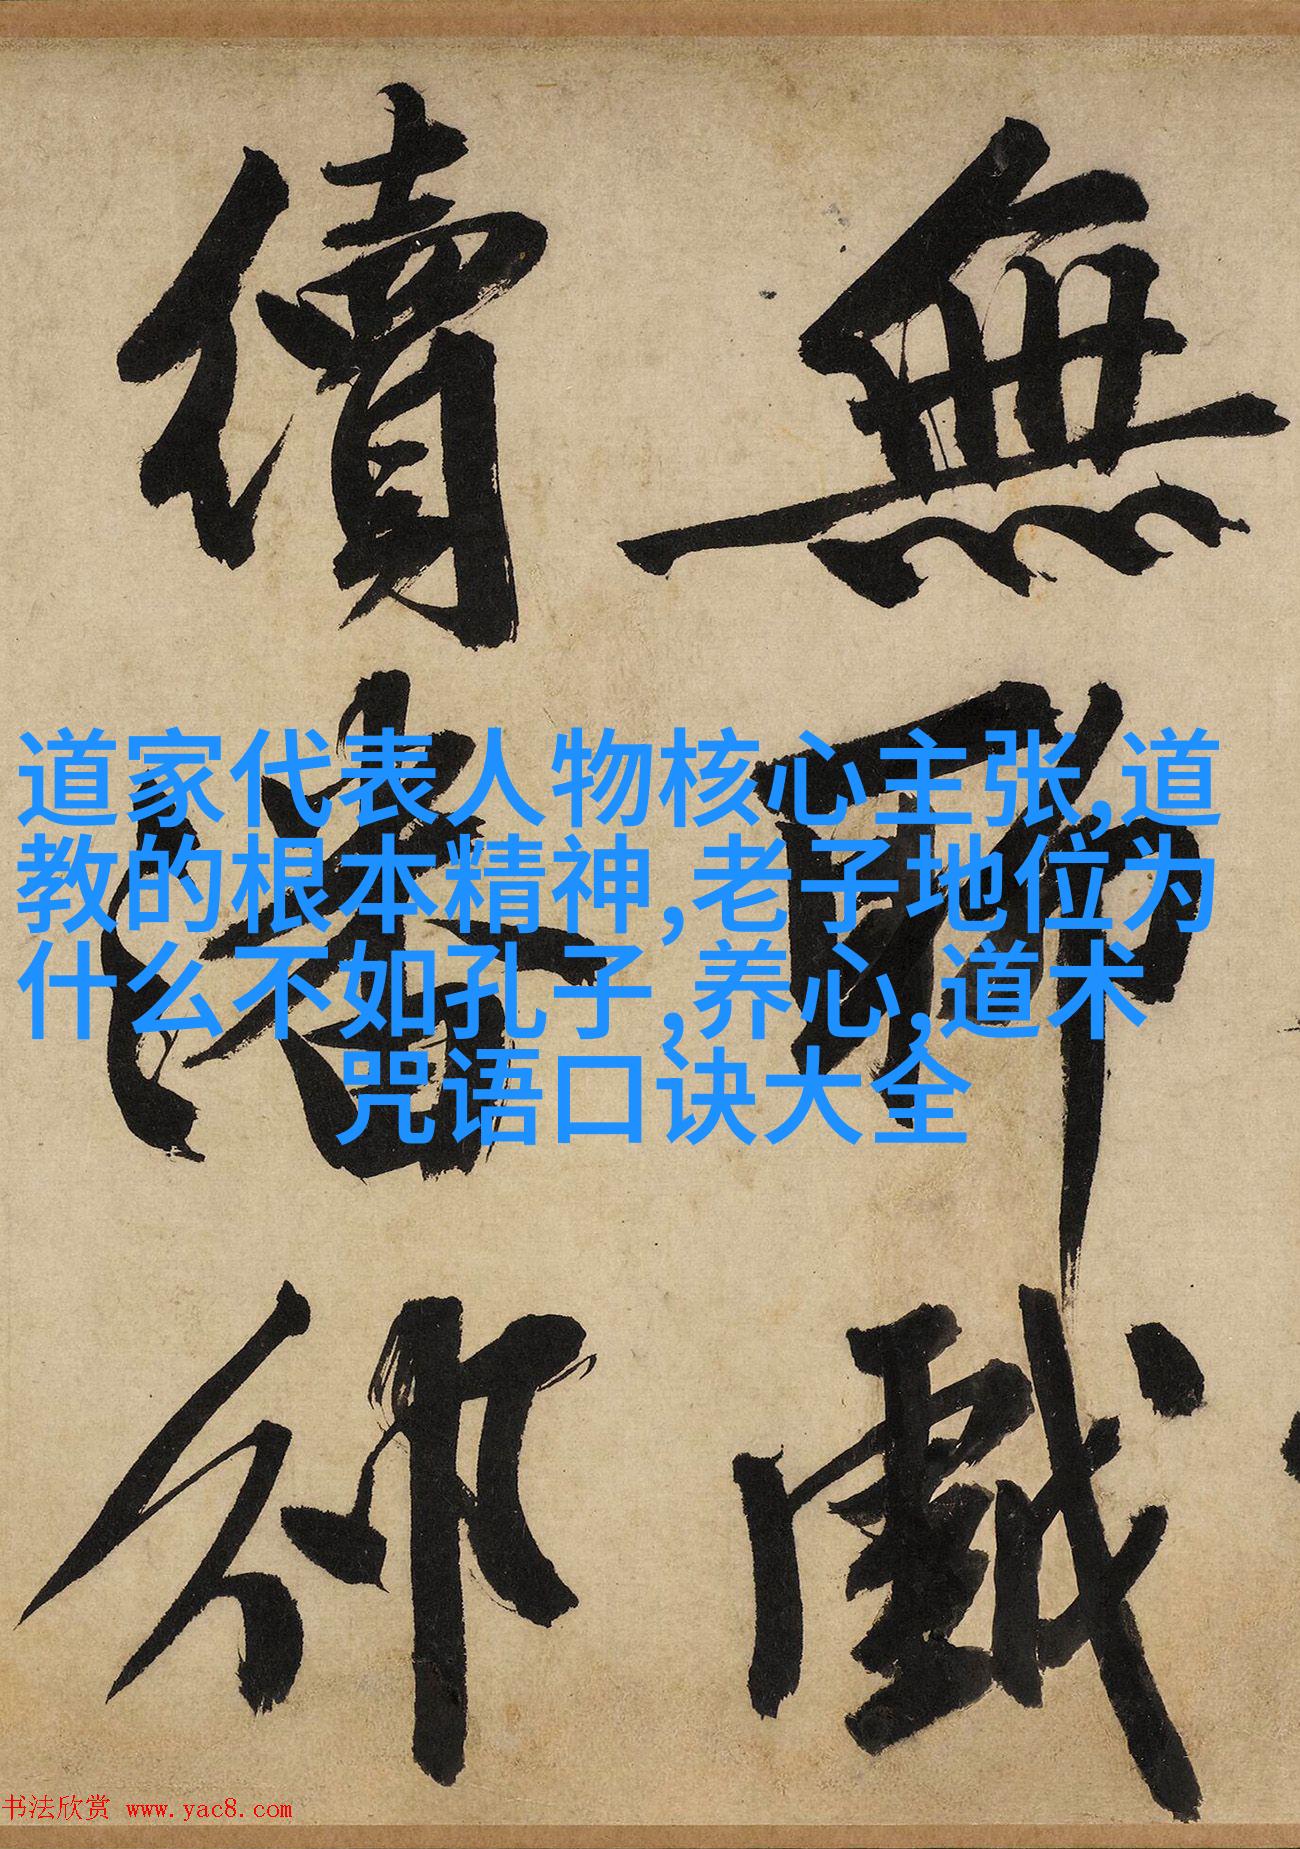 無聊戲
續潘邠
道家代表人物核心主张,道
教的根本精神,老子地位为
什么不如孔子,养心,道术
咒语口诀大全
书法欣赏 www.yac8.com